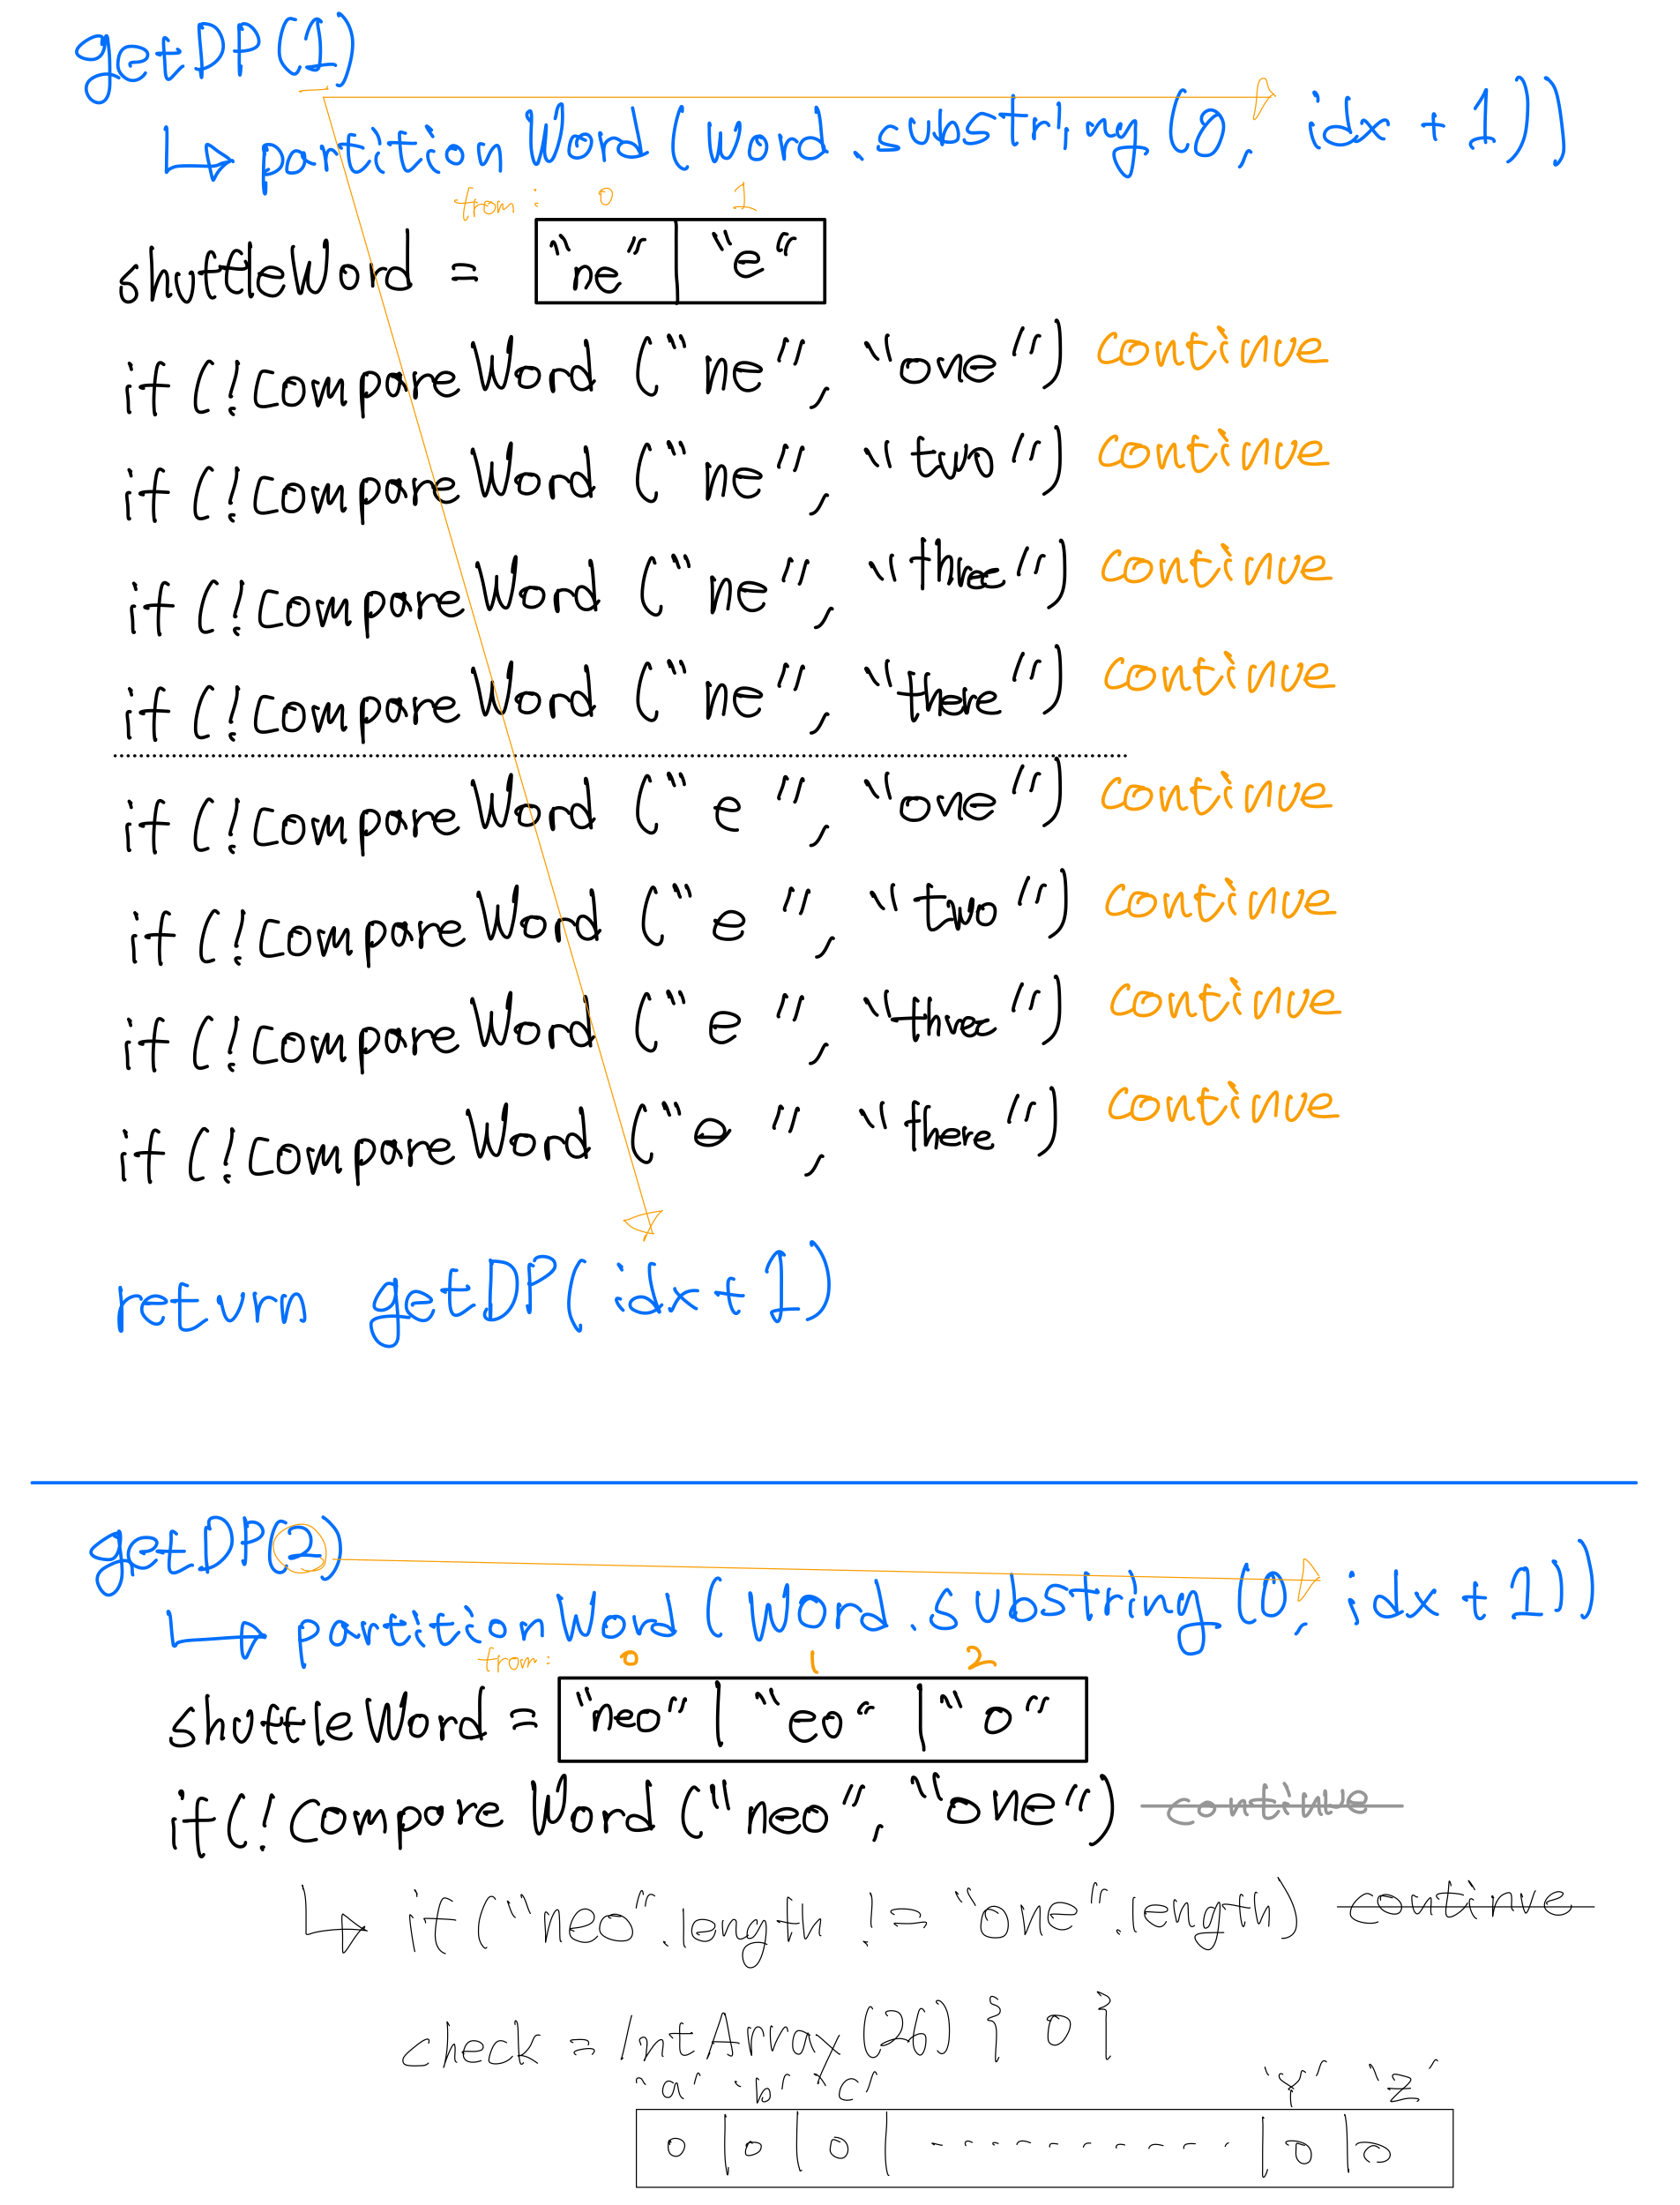 getDP(1)
↳ partitionWord(word.substring(0, idx + 1))
from : 0 1
shuffleWord = "ne" "e"
if(!compareWord("ne", "one") continue
if(!compareWord("ne", "two") continue
if(!compareWord("ne", "three") continue
if(!compareWord("ne", "there") continue
if(!compareWord("e", "one") continue
if(!compareWord("e", "two") continue
if(!compareWord("e", "three") continue
if(!compareWord("e", "there") continue
return getDP(idx+1)
getDP(2)
↳ partitionWord(Word.substring(0, idx + 1))
from: 0 1 2
shuffleWord = "neo" | "eo" | "o"
if(!CompareWord("neo", "one") continue
↳ if("neo".length != "one".length) continue
check = IntArray(26) { 0 }
'a' 'b' 'c' 'y' 'z'
0 | 0 | 0 | - - - - - - - - - - | 0 | 0